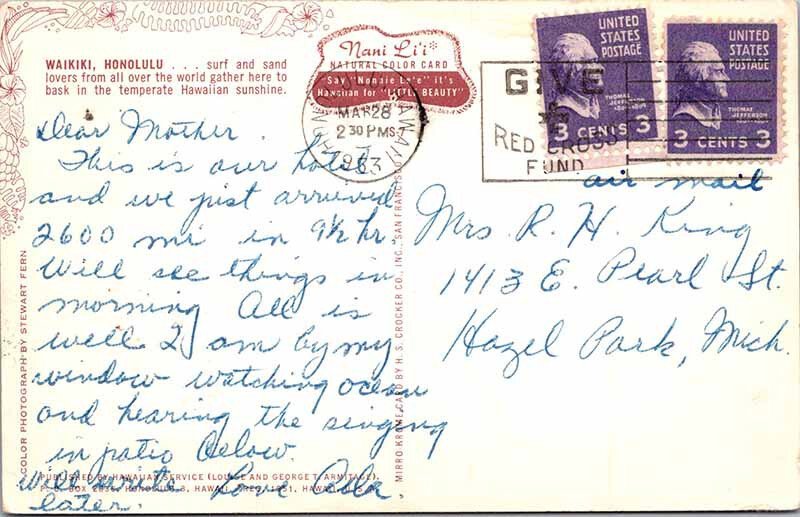 WAIKIKI, HONOLULU . . . surf and sand
lovers from all over the world gather here to
bask in the temperate Hawaiian sunshine.
Nani Li'i*
NATURAL COLOR CARD
*Say "Nonnie Le'e" it's
Hawaiian for "LITTLE BEAUTY"
HONOLULU HAWAII
MAR 28
2 30 PM
1963
GIVE
RED CROSS
FUND
UNITED
STATES
POSTAGE
THOMAS
JEFFERSON
3 CENTS 3
UNITED
STATES
POSTAGE
THOMAS
JEFFERSON
3 CENTS 3
Dear Mother.
This is our hotel
and we just arrived
2600 mi in 9½ hr.
Will see things in
morning All is
well I am by my
window watching ocean
and hearing the singing
in patio below.
will write Love Ada
later.
air mail
Mrs R. H. King
1413 E. Pearl St.
Hazel Park, Mich.
COLOR PHOTOGRAPH BY STEWART FERN
MIRRO-KROME CARD BY H. S. CROCKER CO., INC., SAN FRANCISCO
PUBLISHED BY HAWAIIAN SERVICE (LOUISE AND GEORGE T. ARMITAGE),
P. O. BOX 2835, HONOLULU 3, HAWAII